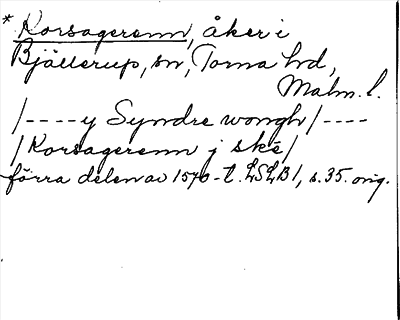 * Korsagerenn, åker i
Bjällerup, sn, Torna hd,
Malm. l.
/---- y Syndre wongh/----
/Korsagerenn j skë/
förra delen av 1570-t. LSLB1, s. 35. orig.